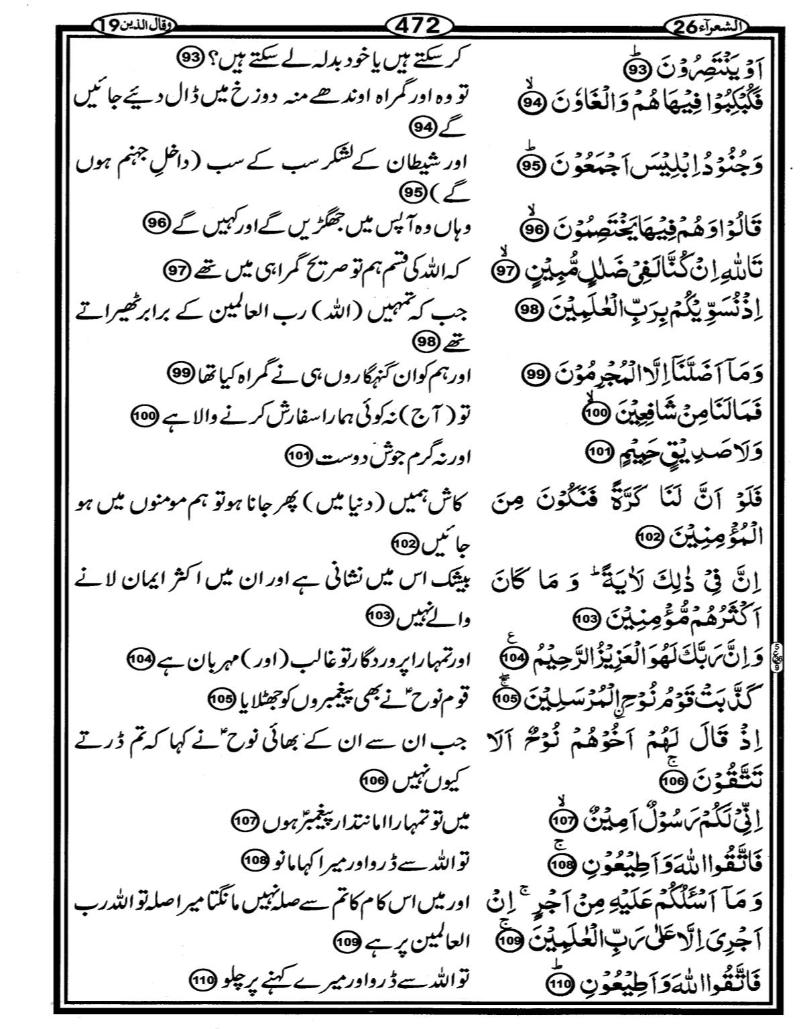 الشعرآء26 472 وقال الذين19
اَوْ يَنْتَصِرُوْنَ ؕ 93 کر سکتے ہیں یا خود بدلہ لے سکتے ہیں؟ 93
فَكُبْكِبُوْا فِيْهَا هُمْ وَالْغَاوٗنَ ۙ 94 تو وہ اور گمراہ اوندھے منہ دوزخ میں ڈال دیئے جائیں
گے 94
وَجُنُوْدُ اِبْلِيْسَ اَجْمَعُوْنَ ؕ 95 اور شیطان کے لشکر سب کے سب (داخلِ جہنم ہوں
گے) 95
قَالُوْا وَهُمْ فِيْهَا يَخْتَصِمُوْنَ ۙ 96 وہاں وہ آپس میں جھگڑیں گے اور کہیں گے 96
تَاللّٰهِ اِنْ كُنَّا لَفِيْ ضَلٰلٍ مُّبِيْنٍ ۙ 97 کہ اللہ کی قسم ہم تو صریح گمراہی میں تھے 97
اِذْ نُسَوِّيْكُمْ بِرَبِّ الْعٰلَمِيْنَ 98 جب کہ تمہیں (اللہ) رب العالمین کے برابر ٹھیراتے
تھے 98
وَمَآ اَضَلَّنَآ اِلَّا الْمُجْرِمُوْنَ 99 اور ہم کو ان گنہگاروں ہی نے گمراہ کیا تھا 99
فَمَا لَنَا مِنْ شَافِعِيْنَ ۙ 100 تو (آج) نہ کوئی ہمارا سفارش کرنے والا ہے 100
وَلَا صَدِيْقٍ حَمِيْمٍ 101 اور نہ گرم جوش دوست 101
فَلَوْ اَنَّ لَنَا كَرَّةً فَنَكُوْنَ مِنَ کاش ہمیں (دنیا میں) پھر جانا ہو تو ہم مومنوں میں ہو
الْمُؤْمِنِيْنَ 102 جائیں 102
اِنَّ فِيْ ذٰلِكَ لَاٰيَةً ؕ وَ مَا كَانَ بیشک اس میں نشانی ہے اور ان میں اکثر ایمان لانے
اَكْثَرُهُمْ مُّؤْمِنِيْنَ 103 والے نہیں 103
وَاِنَّ رَبَّكَ لَهُوَ الْعَزِيْزُ الرَّحِيْمُ ع 104 اور تمہارا پروردگار تو غالب (اور) مہربان ہے 104
كَذَّبَتْ قَوْمُ نُوْحِ ۨالْمُرْسَلِيْنَ 105 قوم نوحؑ نے بھی پیغمبروں کو جھٹلایا 105
اِذْ قَالَ لَهُمْ اَخُوْهُمْ نُوْحٌ اَلَا جب ان سے ان کے بھائی نوحؑ نے کہا کہ تم ڈرتے
تَتَّقُوْنَ ۚ 106 کیوں نہیں 106
اِنِّيْ لَكُمْ رَسُوْلٌ اَمِيْنٌ ۙ 107 میں تو تمہارا امانتدار پیغمبرؑ ہوں 107
فَاتَّقُوا اللّٰهَ وَاَطِيْعُوْنِ ۚ 108 تو اللہ سے ڈرو اور میرا کہا مانو 108
وَمَآ اَسْئَلُكُمْ عَلَيْهِ مِنْ اَجْرٍ ۚ اِنْ اور میں اس کام کا تم سے صلہ نہیں مانگتا میرا صلہ تو اللہ رب
اَجْرِيَ اِلَّا عَلٰى رَبِّ الْعٰلَمِيْنَ ۚ 109 العالمین پر ہے 109
فَاتَّقُوا اللّٰهَ وَاَطِيْعُوْنِ ؕ 110 تو اللہ سے ڈرو اور میرے کہنے پر چلو 110